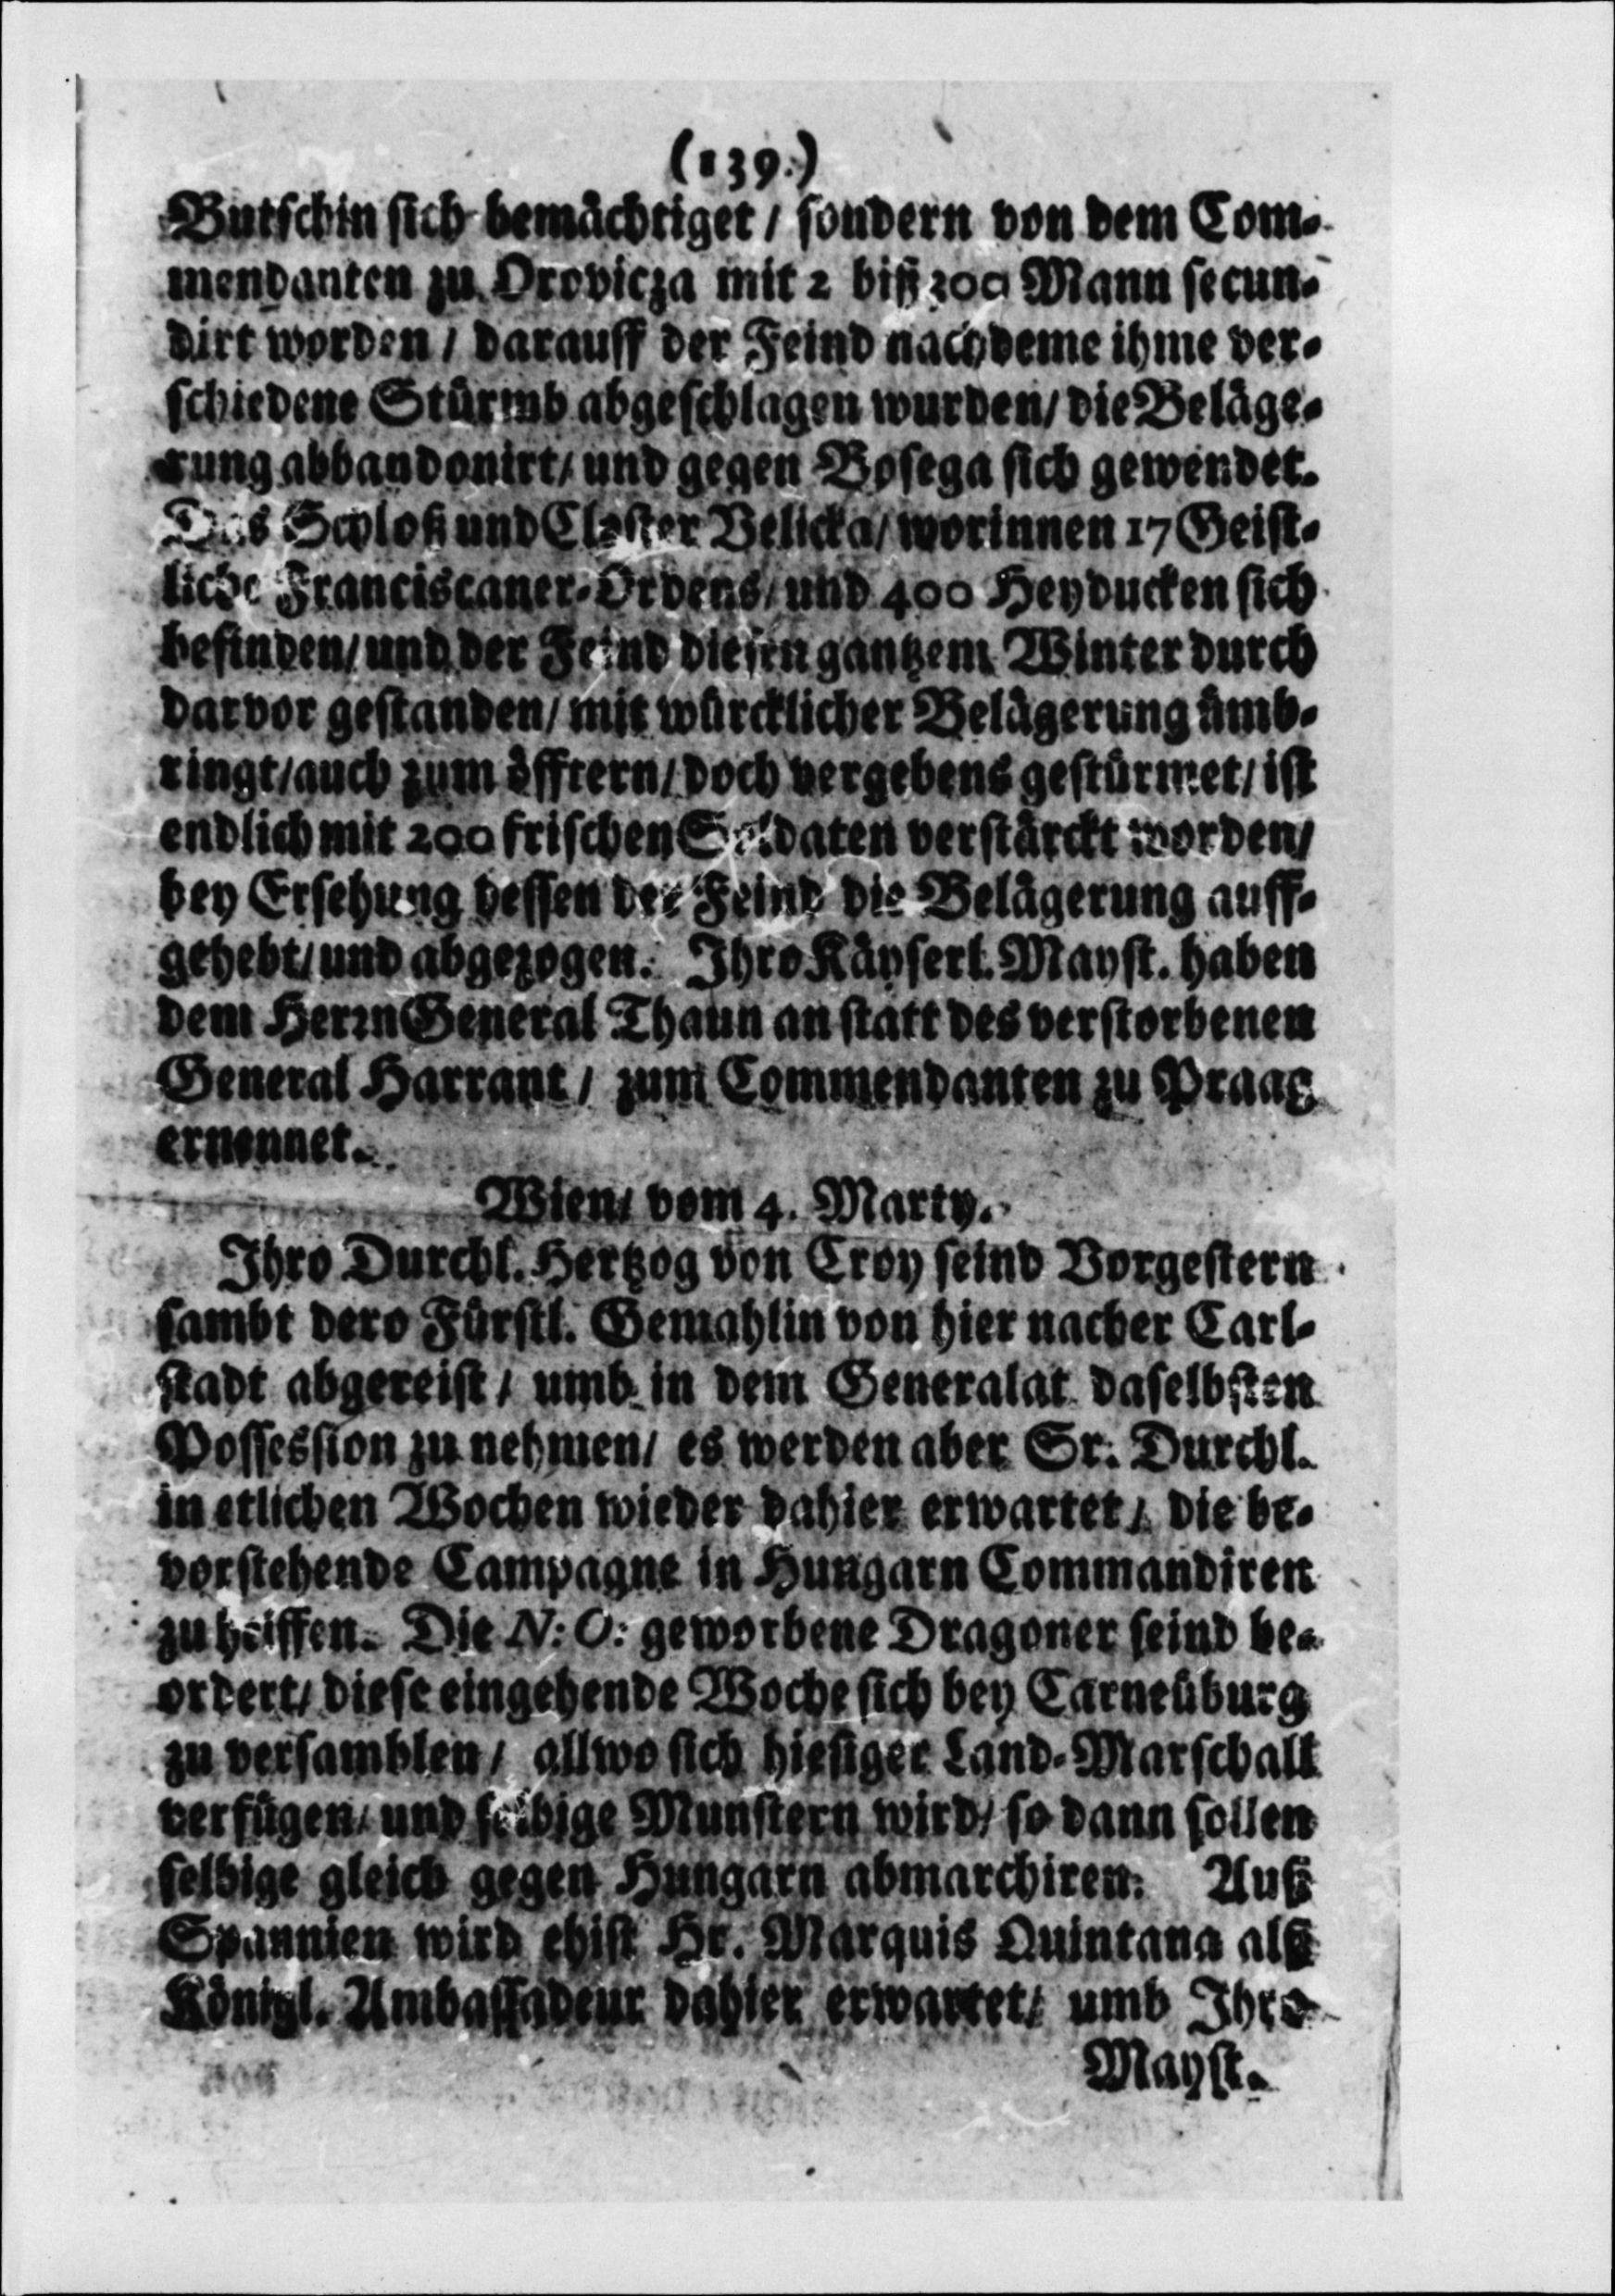 (139.)
Butschin sich bemächtiget / sondern von dem Com-
mendanten zu Orovicza mit 2 biß 300 Mann secun-
dirt worden / darauff der Feind nachdeme ihme ver-
schiedene Stürmb abgeschlagen wurden / die Beläge-
rung abbandonirt / und gegen Bosega sich gewendet.
Das Schloß und Closter Velicka / worinnen 17 Geist-
liche Franciscaner-Ordens / und 400 Heyducken sich
befinden / und der Feind diesen gantzem Winter durch
darvor gestanden / mit würcklicher Belägerung ümb-
ringt / auch zum öfftern / doch vergebens gestürmet / ist
endlich mit 200 frischen Soldaten verstärckt worden /
bey Ersehung dessen der Feind die Belägerung auff-
gehebt / und abgezogen. Ihro Käyserl. Mayst. haben
dem Herrn General Thaun an statt des verstorbenen
General Harrant / zum Commendanten zu Praag
ernennet.
Wien / vom 4. Marty.
Ihro Durchl. Hertzog von Croy seind Vorgestern
sambt dero Fürstl. Gemahlin von hier nacher Carl-
stadt abgereist / umb in dem Generalat daselbsten
Possession zu nehmen / es werden aber Sr. Durchl.
in etlichen Wochen wieder dahier erwartet / die be-
vorstehende Campagne in Hungarn Commandiren
zu helffen. Die N: O: geworbene Dragoner seind be-
ordert / diese eingehende Woche sich bey Carneüburg
zu versamblen / allwo sich hiesiger Land-Marschall
verfügen / und selbige Munstern wird / so dann sollen
selbige gleich gegen Hungarn abmarchiren. Auß
Spannien wird ehist Hr. Marquis Quintana alß
Königl. Ambassadeur dahier erwartet / umb Ihro
Mayst.